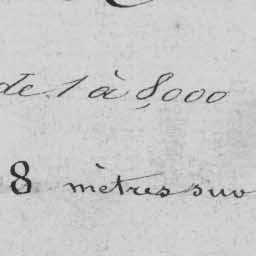 de 1 à 8,000
8 mètres sur